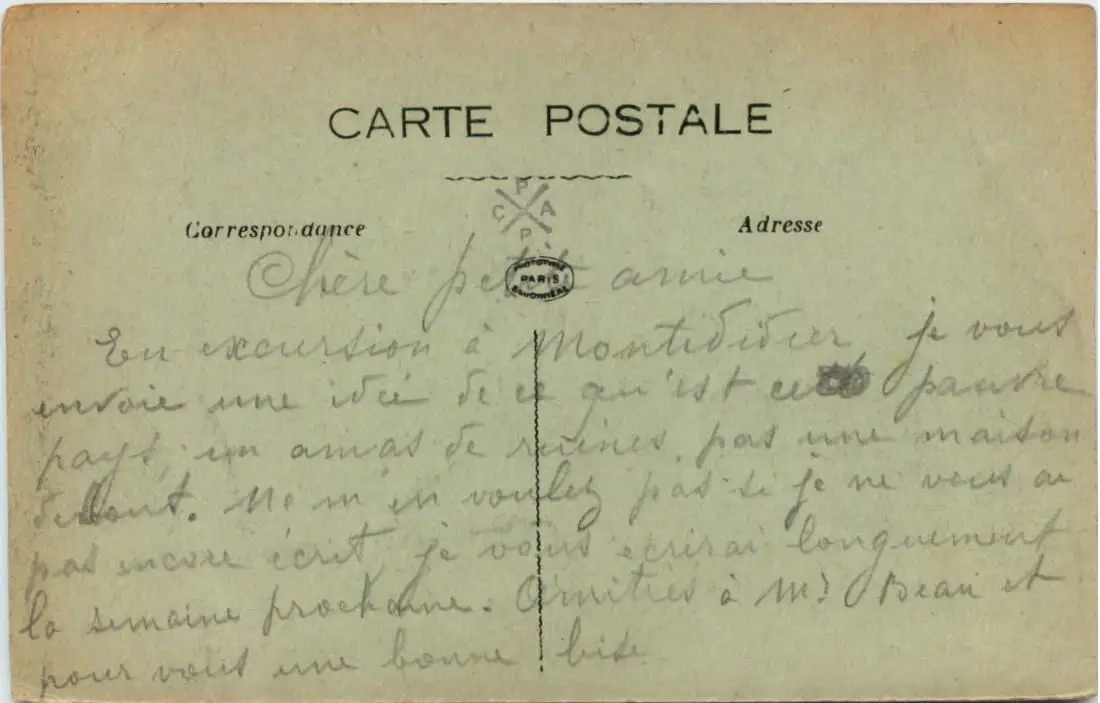 CARTE POSTALE
P
C A
P
Correspondance
Adresse
PHOTOTYPIE
PARIS
Chère petite amie
En excursion à Montididier je vous
envoie une idée de ce qu'est ce pauvre
pays, un amas de ruines, pas une maison
debout. Ne m'en voulez pas si je ne vous ai
pas encore écrit, je vous ecrirai longuement
la semaine prochaine. Amitiés à Mr Beau et
pour vous une bonne bise